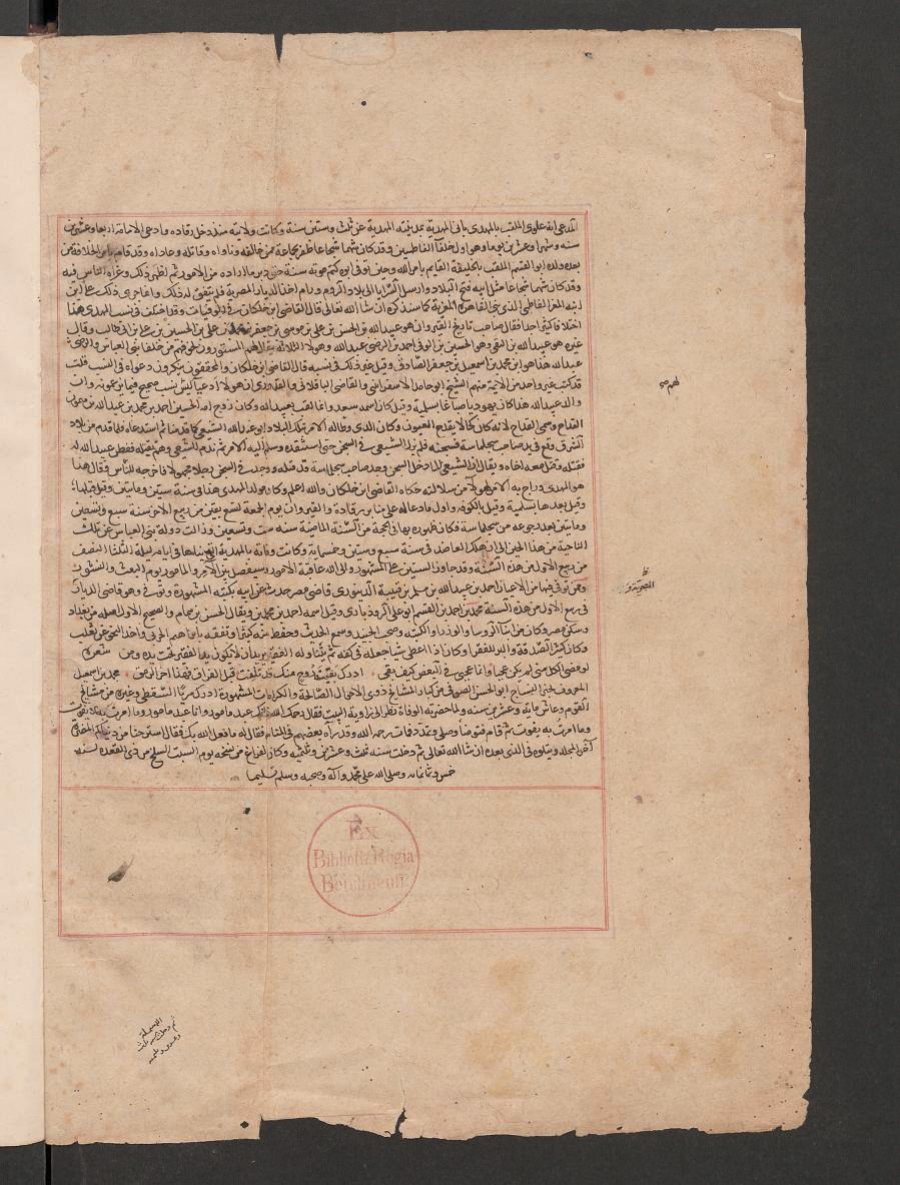 المدعي انه علوي الملقب بالمهدي باني المهدية بمدينته المهدية عن ثلث وستين سنة وكانت ولايته منذ دخل رقاده وادعى الامامة اربعا وعشرين
سنه وشهرا وعشرين يوما وهو اول خلفا الفاطميين وقد كان شهما شجاعا ظفر بجماعة ممن خالفه وناواه وقاتله وعاداه وقد قام بامر الخلافة من
بعده ولده ابو القسم الملقب بالخليفة القايم بامر الله وحين توفي ابوه كتم موته سنة حتى دبر ما اراده من الامور ثم اظهر ذلك وعزاه الناس فيه
وقد كان شهما شجاعا مثل ابيه فتح البلاد وارسل السرايا الى بلاد الروم ورام اخذ الديار المصرية فلم يتفق له ذلك وانما جرى ذلك على ابن
ابنه المعز الفاطمي الذي بنى القاهرة المعزية كما سنذكره ان شا الله تعالى قال القاضي ابن خلكان في الوفيات وقد اختلف في نسب المهدي هذا
اختلافا كثيرا جدا فقال صاحب تاريخ القيروان هو عبيد الله بن الحسن بن علي بن موسى بن جعفر بن علي بن الحسين بن علي بن ابي طالب وقال
غيره هو عبيد الله بن التقي وهو الحسين بن الوفي احمد بن الرضي عبد الله وهولا الثلاثة يقال لهم المستورون لخوفهم من خلفا بني العباس والرضي
عبد الله هذا هو ابن محمد بن اسمعيل بن جعفر الصادق وقيل غير ذلك في نسبه قال القاضي ابن خلكان والمحققون ينكرون دعواه في النسب قلت
قد كتب غير واحد من الايمة منهم الشيخ ابو حامد الاسفرايني والقاضي الباقلاني والقدوري ان هولا ادعيا ليس نسب صحيح فيما يزعمونه وان
والد عبيد الله هذا كان يهوديا صباغا بسلمية وقيل كان اسمه سعد وانما لقب بعبيد الله وكان زوج امه الحسين بن احمد بن محمد بن عبد الله بن ميمون
القداح وسمي القداح لانه كان كحالا يقدح العيون وكان الذي وطا له الامر بتلك البلاد ابو عبد الله الشيعي كما قدمنا ثم استدعاه فلما قدم من بلاد
الشرق وقع في يد صاحب سجلماسة فسجنه فلم يزل الشيعي في السجن حتى استنقذه وسلم اليه الامر ثم ندم الشيعي وهم بقتله ففطن عبيد الله له
فقتله وقتل معه اخاه ويقال ان الشيعي لما دخل السجن وجد صاحب سجلماسة قد قتله ووجد في السجن رجلا مجهولا فاخرجه للناس فقال هذا
هو المهدي وراج به الامر فهولا من سلالته حكاه القاضي ابن خلكان والله اعلم وكان مولد المهدي هذا في سنة ستين وماتين وقيل قبلها
وقيل بعدها بسلمية وقيل بالكوفه واول ما دعا له على منابر رقادة والقيروان يوم الجمعة لتسع بقين من ربيع الاخر سنة سبع وتسعين
وماتين بعد رجوعه من سجلماسة وكان ظهوره بها في ذي الحجة من السنة الماضية سنه ست وتسعين وزالت دولة بني العباس عن تلك
الناحية من هذا الحين الى ان هلك العاضد في سنة سبع وستين وخمسماية وكانت وفاته بالمهدية التي بناها في ايامه ليلة الثلثا النصف
من ربيع الاول من هذه السنة وقد جاوز الستين على المشهور والى الله عاقبة الامور وسيفصل بين الآمر والمامور يوم البعث والنشور
وممن توفي فيها من الاعيان احمد بن عبد الله بن مسلم بن قتيبة الدينوري قاضي مصر حدث عن ابيه بكتبه المشهورة وتوفي وهو قاضي الديار
في ربيع الاول من هذه السنة محمد بن احمد بن القسم ابو علي الروذبادي وقيل اسمه احمد بن محمد بن ويقال الحسن بن همام والصحيح الاول اصله من بغداد
وسكن مصر وكان من ابنا الروسا والوزرا والكتبه وصحب الجنيد وسمع الحديث وحفظ منه كثيرا وتفقه بابراهيم الحربي واخذ النحو عن ثعلب
وكان كثير الصدقة والبر للفقرا وكان اذا اعطى شيا جعله في كفه ثم يتناوله الفقير يريد ان لا تكون يد الفقير تحت يده ومن شعره
لو مضى الكل مني لم يكن عجبا وانما عجبي في البعض كيف بقي ، ادرك بقية روح منك قد تلفت قبل الفراق فهذا اخر الرمق ، محمد بن اسمعيل
المعروف بخير النساج ابو الحسن الصوفي من كبار المشايخ ذوي الاحوال الصالحة والكرامات المشهورة ادرك سريا السقطي وغيره من مشايخ
القوم وعاش مايه وعشرين سنه ولما حضرته الوفاة نظر الى زاوية البيت فقال قف رحمك الله فانك عبد مامور وانا عبد مامور وما امرت به لا يفوت
وما امرت به يفوت ثم قام فتوضا وصلى وتمدد فمات رحمه الله وقد راه بعضهم في المنام فقال له ما فعل الله بك فقال استرحنا من دنياكم الوخمة
آخر المجلد ويتلوه في الذي بعده ان شا الله تعالى ثم دخلت سنه ثلث وعشرين وثلثمية وكان الفراغ من نسخه يوم السبت السلخ من ذي القعده لسنة
خمس وثمانمايه وصلى الله على محمد وآله وصحبه وسلم تسليما
لهم صح
Ex
Bibliotheca Regia
Berolinensi.
البسملة
ثم دخلت سنه ثلث
وعشرين وثلثميه